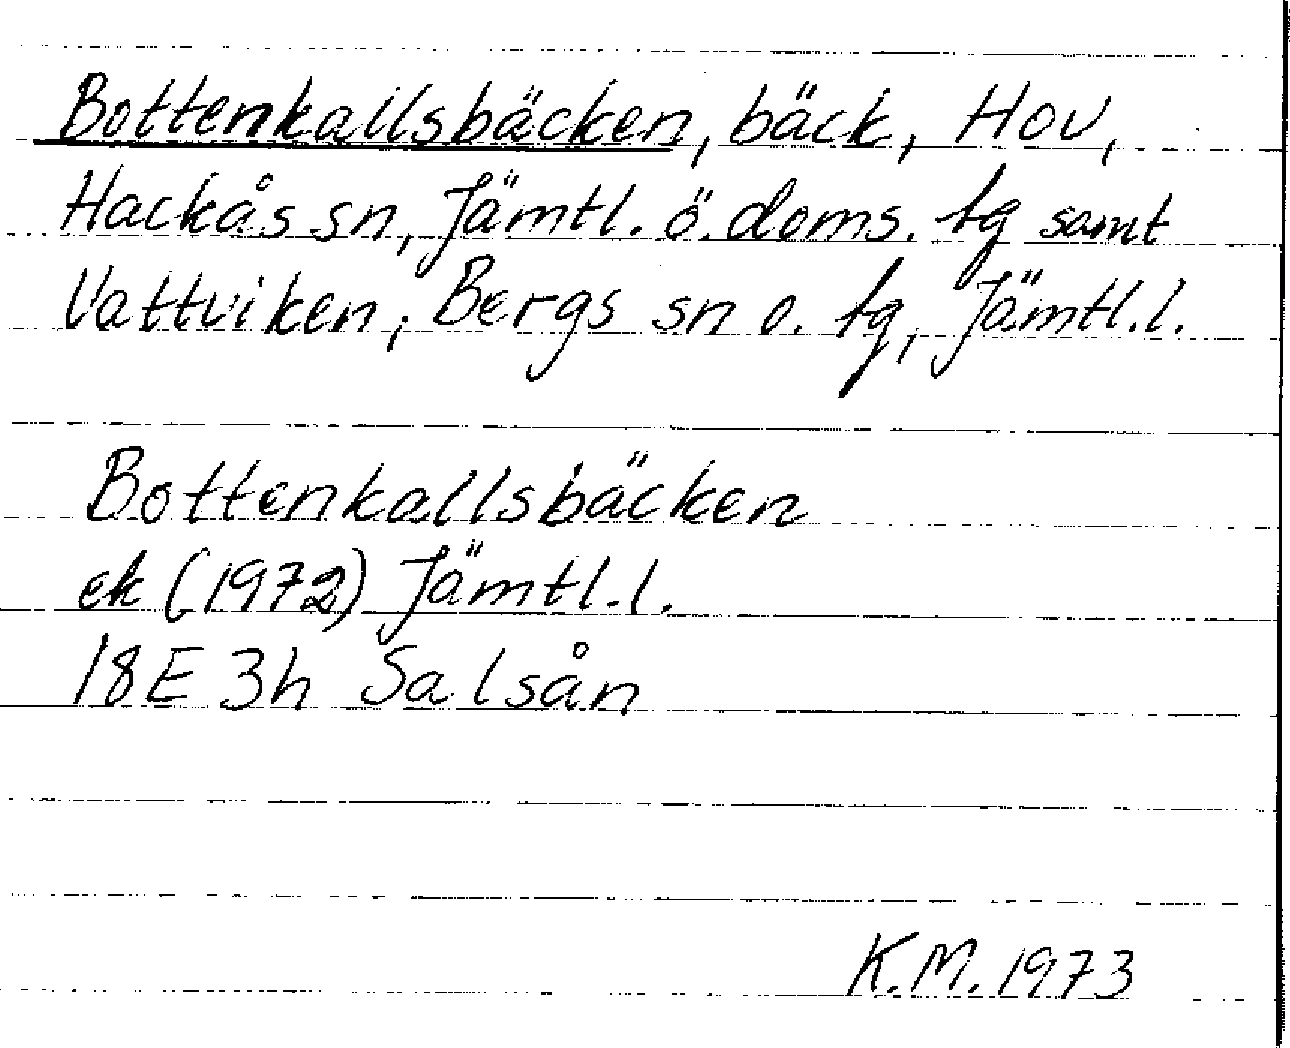 Bottenkallsbäcken, bäck, Hov,
Hackås sn, Jämtl. ö. doms. tg samt
Vattviken, Bergs sn o. tg, Jämtl.l.
Bottenkallsbäcken
ek (1972) Jämtl.l.
18E 3h Salsån
K.M. 1973